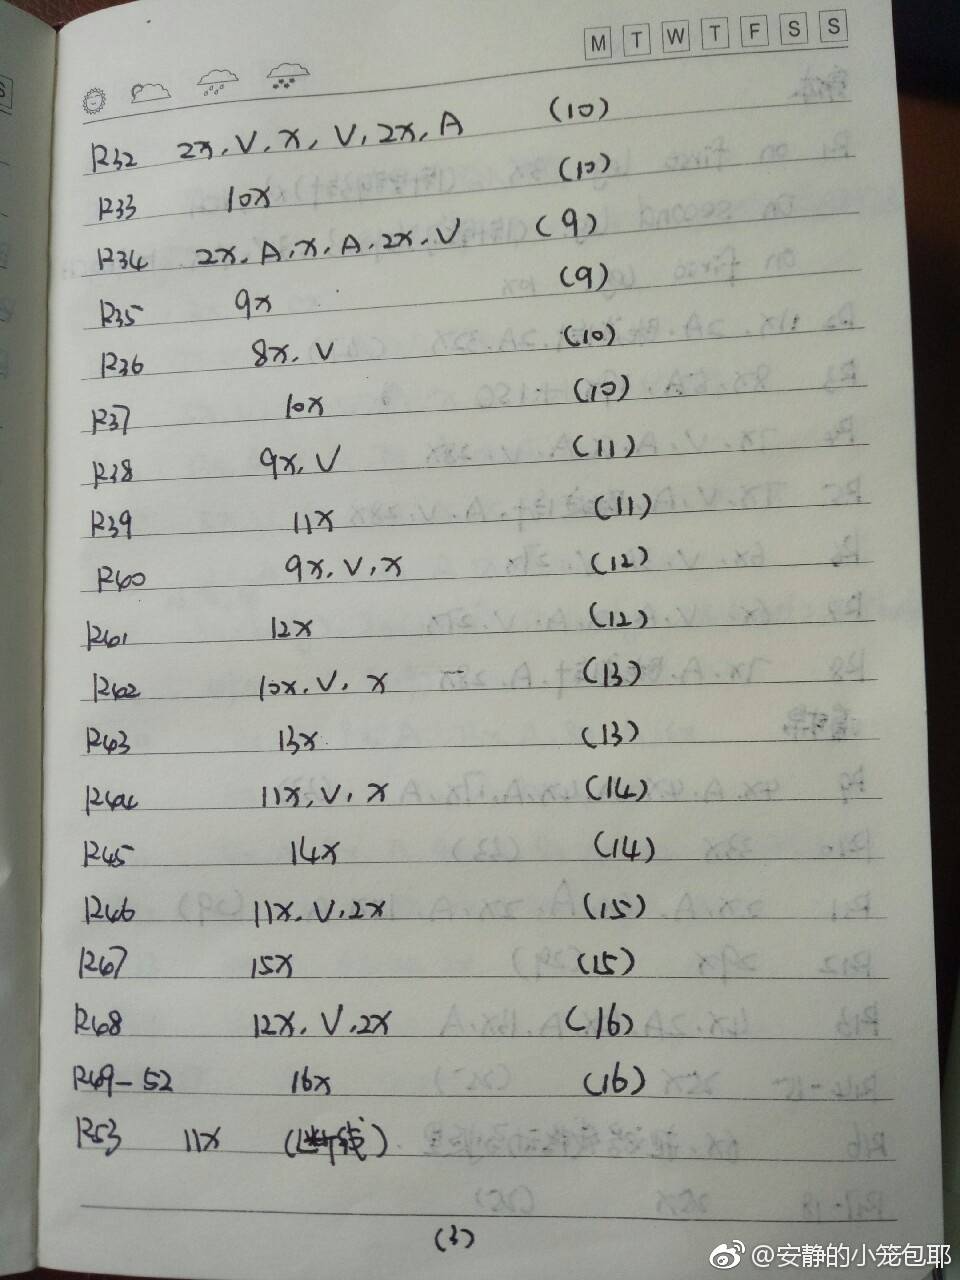 M T W T F S S
R32 2x, V, x, V, 2x, A (10)
R33 10x (10)
R34 2x, A, x, A, 2x, V (9)
R35 9x (9)
R36 8x, V (10)
R37 10x (10)
R38 9x, V (11)
R39 11x (11)
R40 9x, V, x (12)
R41 12x (12)
R42 10x, V, x (13)
R43 13x (13)
R44 11x, V, x (14)
R45 14x (14)
R46 11x, V, 2x (15)
R47 15x (15)
R48 12x, V, 2x (16)
R49-52 16x (16)
R53 11x (断线)
(3)
@安静的小笼包耶